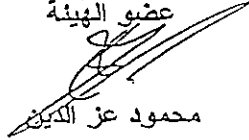 عضو الهيئة
محمود عز الدين